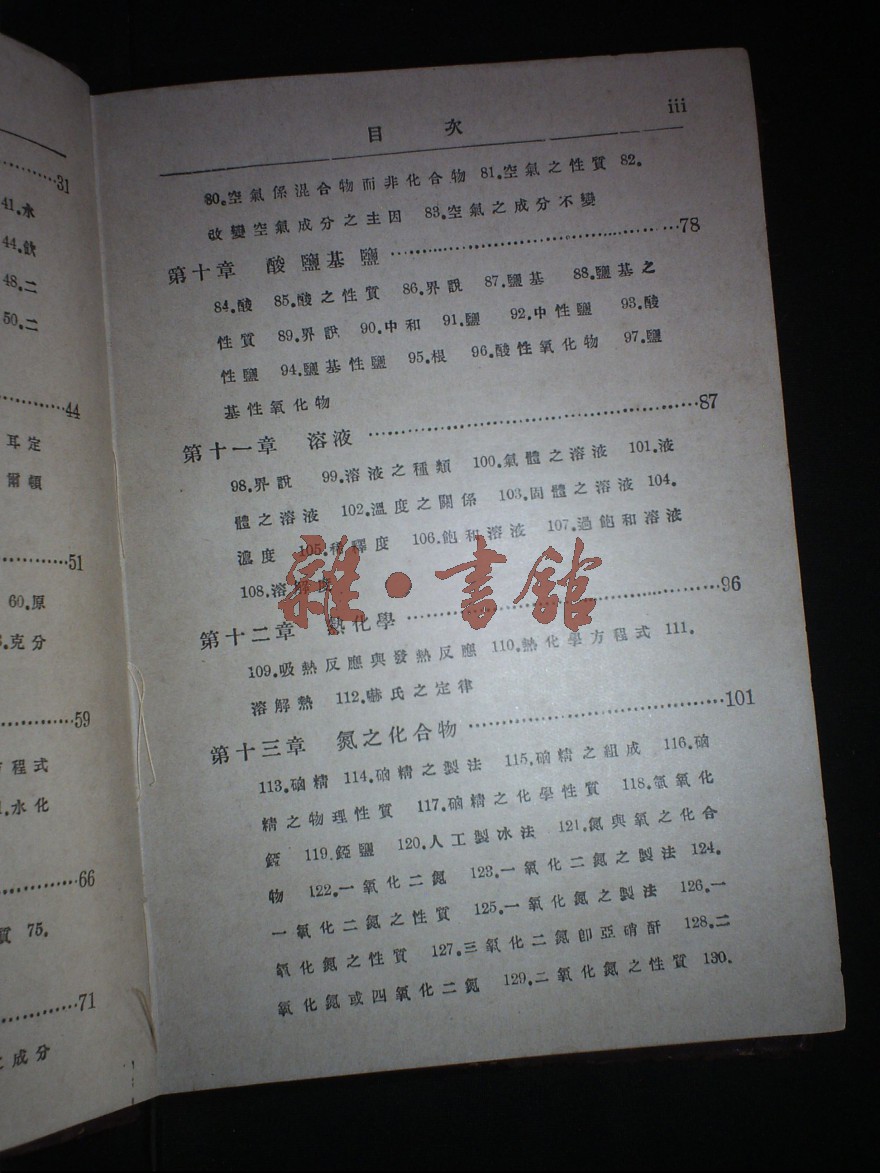 31
41.水
44.飲
48.二
50.二
44
耳定
爾頓
51
60.原
克分
59
方程式
水化
66
質 75.
71
之成分
目 次 iii
80.空氣係混合物而非化合物 81.空氣之性質 82.
改變空氣成分之主因 83.空氣之成分不變
第十章 酸鹽基鹽……78
84.酸 85.酸之性質 86.界説 87.鹽基 88.鹽基之
性質 89.界説 90.中和 91.鹽 92.中性鹽 93.酸
性鹽 94.鹽基性鹽 95.根 96.酸性氧化物 97.鹽
基性氧化物
第十一章 溶液……87
98.界説 99.溶液之種類 100.氣體之溶液 101.液
體之溶液 102.溫度之關係 103.固體之溶液 104.
濃度 105.稀釋度 106.飽和溶液 107.過飽和溶液
108.溶解度
第十二章 熱化學……96
109.吸熱反應與發熱反應 110.熱化學方程式 111.
溶解熱 112.赫氏之定律
第十三章 氮之化合物……101
113.硇精 114.硇精之製法 115.硇精之組成 116.硇
精之物理性質 117.硇精之化學性質 118.氫氧化
錏 119.錏鹽 120.人工製冰法 121.氮與氧之化合
物 122.一氧化二氮 123.一氧化二氮之製法 124.
一氧化二氮之性質 125.一氧化氮之製法 126.一
氧化氮之性質 127.三氧化二氮卽亞硝酐 128.二
氧化氮或四氧化二氮 129.二氧化氮之性質 130.
雜·書館